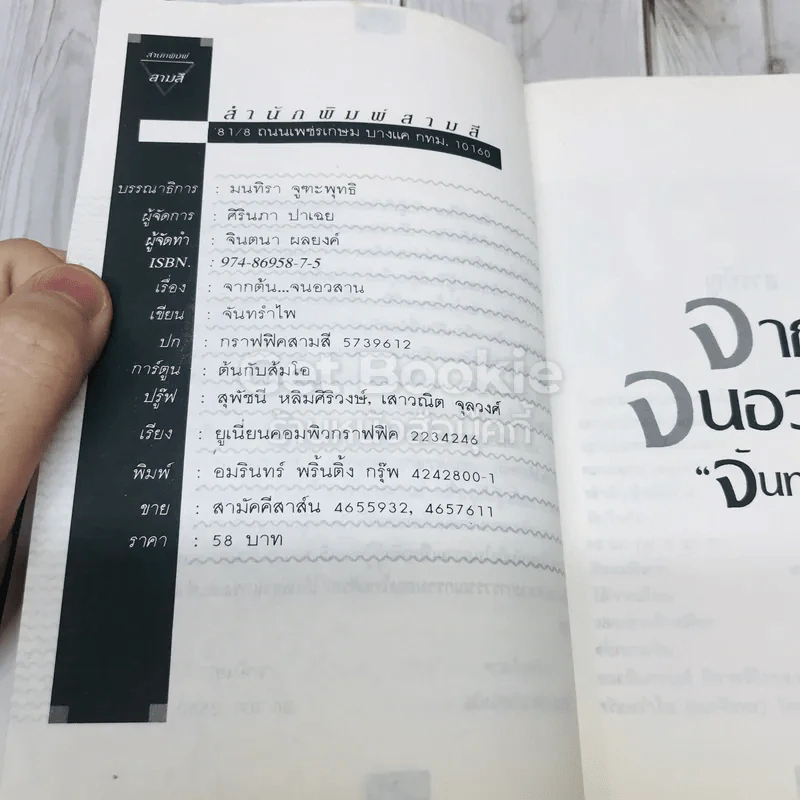 สำนักพิมพ์
สามสี
สำนักพิมพ์สามสี
81/8 ถนนเพชรเกษม บางแค กทม. 10160
บรรณาธิการ : มนทิรา จูฑะพุทธิ
ผู้จัดการ : ศิรินภา ปาเฉย
ผู้จัดทำ : จินตนา ผลยงค์
ISBN. : 974-86958-7-5
เรื่อง : จากต้น...จนอวสาน
เขียน : จันทรำไพ
ปก : กราฟฟิคสามสี 5739612
การ์ตูน : ต้นกับส้มโอ
ปรู๊ฟ : สุพัชนี หลิมศิริวงษ์, เสาวณิต จุลวงศ์
เรียง : ยูเนี่ยนคอมพิวกราฟฟิค 2234246
พิมพ์ : อมรินทร์ พริ้นติ้ง กรุ๊พ 4242800-1
ขาย : สามัคคีสาส์น 4655932, 4657611
ราคา : 58 บาท
Get Bookie
จาก
จนอว
“จันท